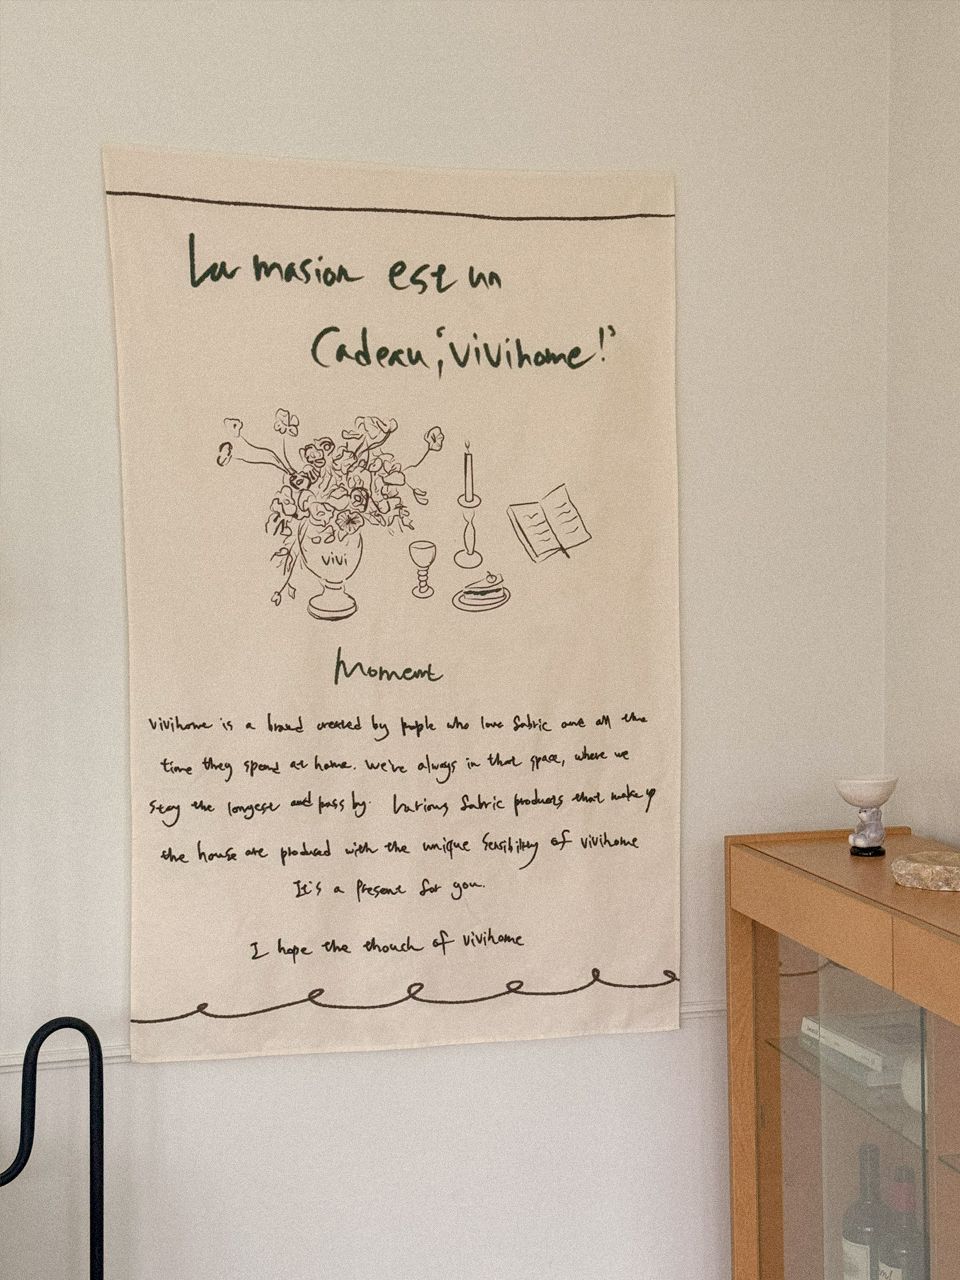 La masion est un
Cadeau, 'vivihome!'
vivi
Moment
vivihome is a brand created by people who love fabric and all the
time they spend at home. We're always in that space, where we
stay the longest and pass by. Various fabric products that make up
the house are produced with the unique sensibility of vivihome
It's a present for you.
I hope the thouch of vivihome